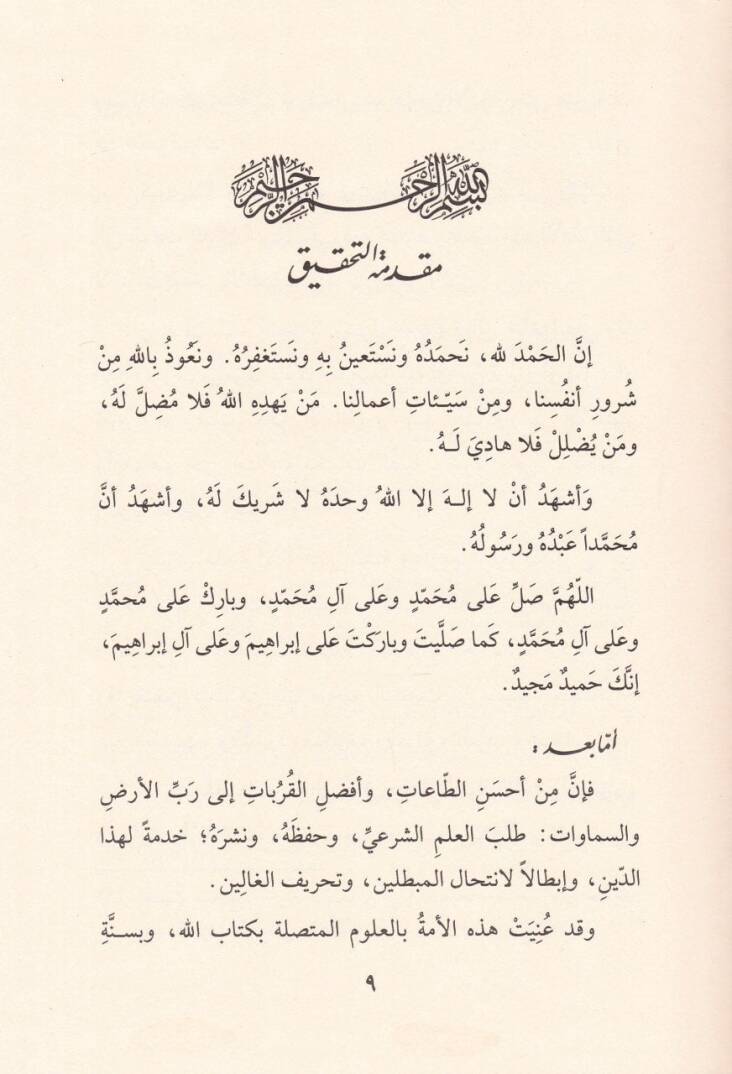 بسم الله الرحمن الرحيم
مقدمة التحقيق
إنَّ الحَمْدَ لله، نَحمَدُهُ ونَسْتَعينُ بِهِ ونَستَغفِرُهُ. ونَعُوذُ بِاللهِ مِنْ
شُرورِ أنفُسِنا، ومِنْ سَيّئاتِ أعمالِنا. مَنْ يَهدِهِ اللهُ فَلا مُضِلَّ لَهُ،
ومَنْ يُضْلِلْ فَلا هادِيَ لَـهُ.
وَأشهَدُ أنْ لا إلـهَ إلا اللهُ وحدَهُ لا شَريكَ لَهُ، وأشهَدُ أنَّ
مُحَمَّداً عَبْدُهُ ورَسُولُهُ.
اللّهُمَّ صَلِّ عَلى مُحَمّدٍ وعَلى آلِ مُحَمّدٍ، وبارِكْ عَلى مُحمَّدٍ
وعَلى آلِ مُحَمَّدٍ، كَما صَلَّيتَ وبارَكْتَ عَلى إبراهِيمَ وعَلى آلِ إبراهِيمَ،
إنَّكَ حَميدٌ مَجيدٌ.
أمّا بعد :
فإنَّ مِنْ أحسَنِ الطّاعاتِ، وأفضلِ القُرُباتِ إلى رَبِّ الأرضِ
والسماوات: طلبَ العلمِ الشرعيِّ، وحفظَهُ، ونشرَهُ؛ خدمةً لهذا
الدّينِ، وإبطالاً لانتحال المبطلين، وتحريف الغالِين.
وقد عُنِيَتْ هذه الأمةُ بالعلوم المتصلة بكتاب الله، وبسـنَّةِ
٩